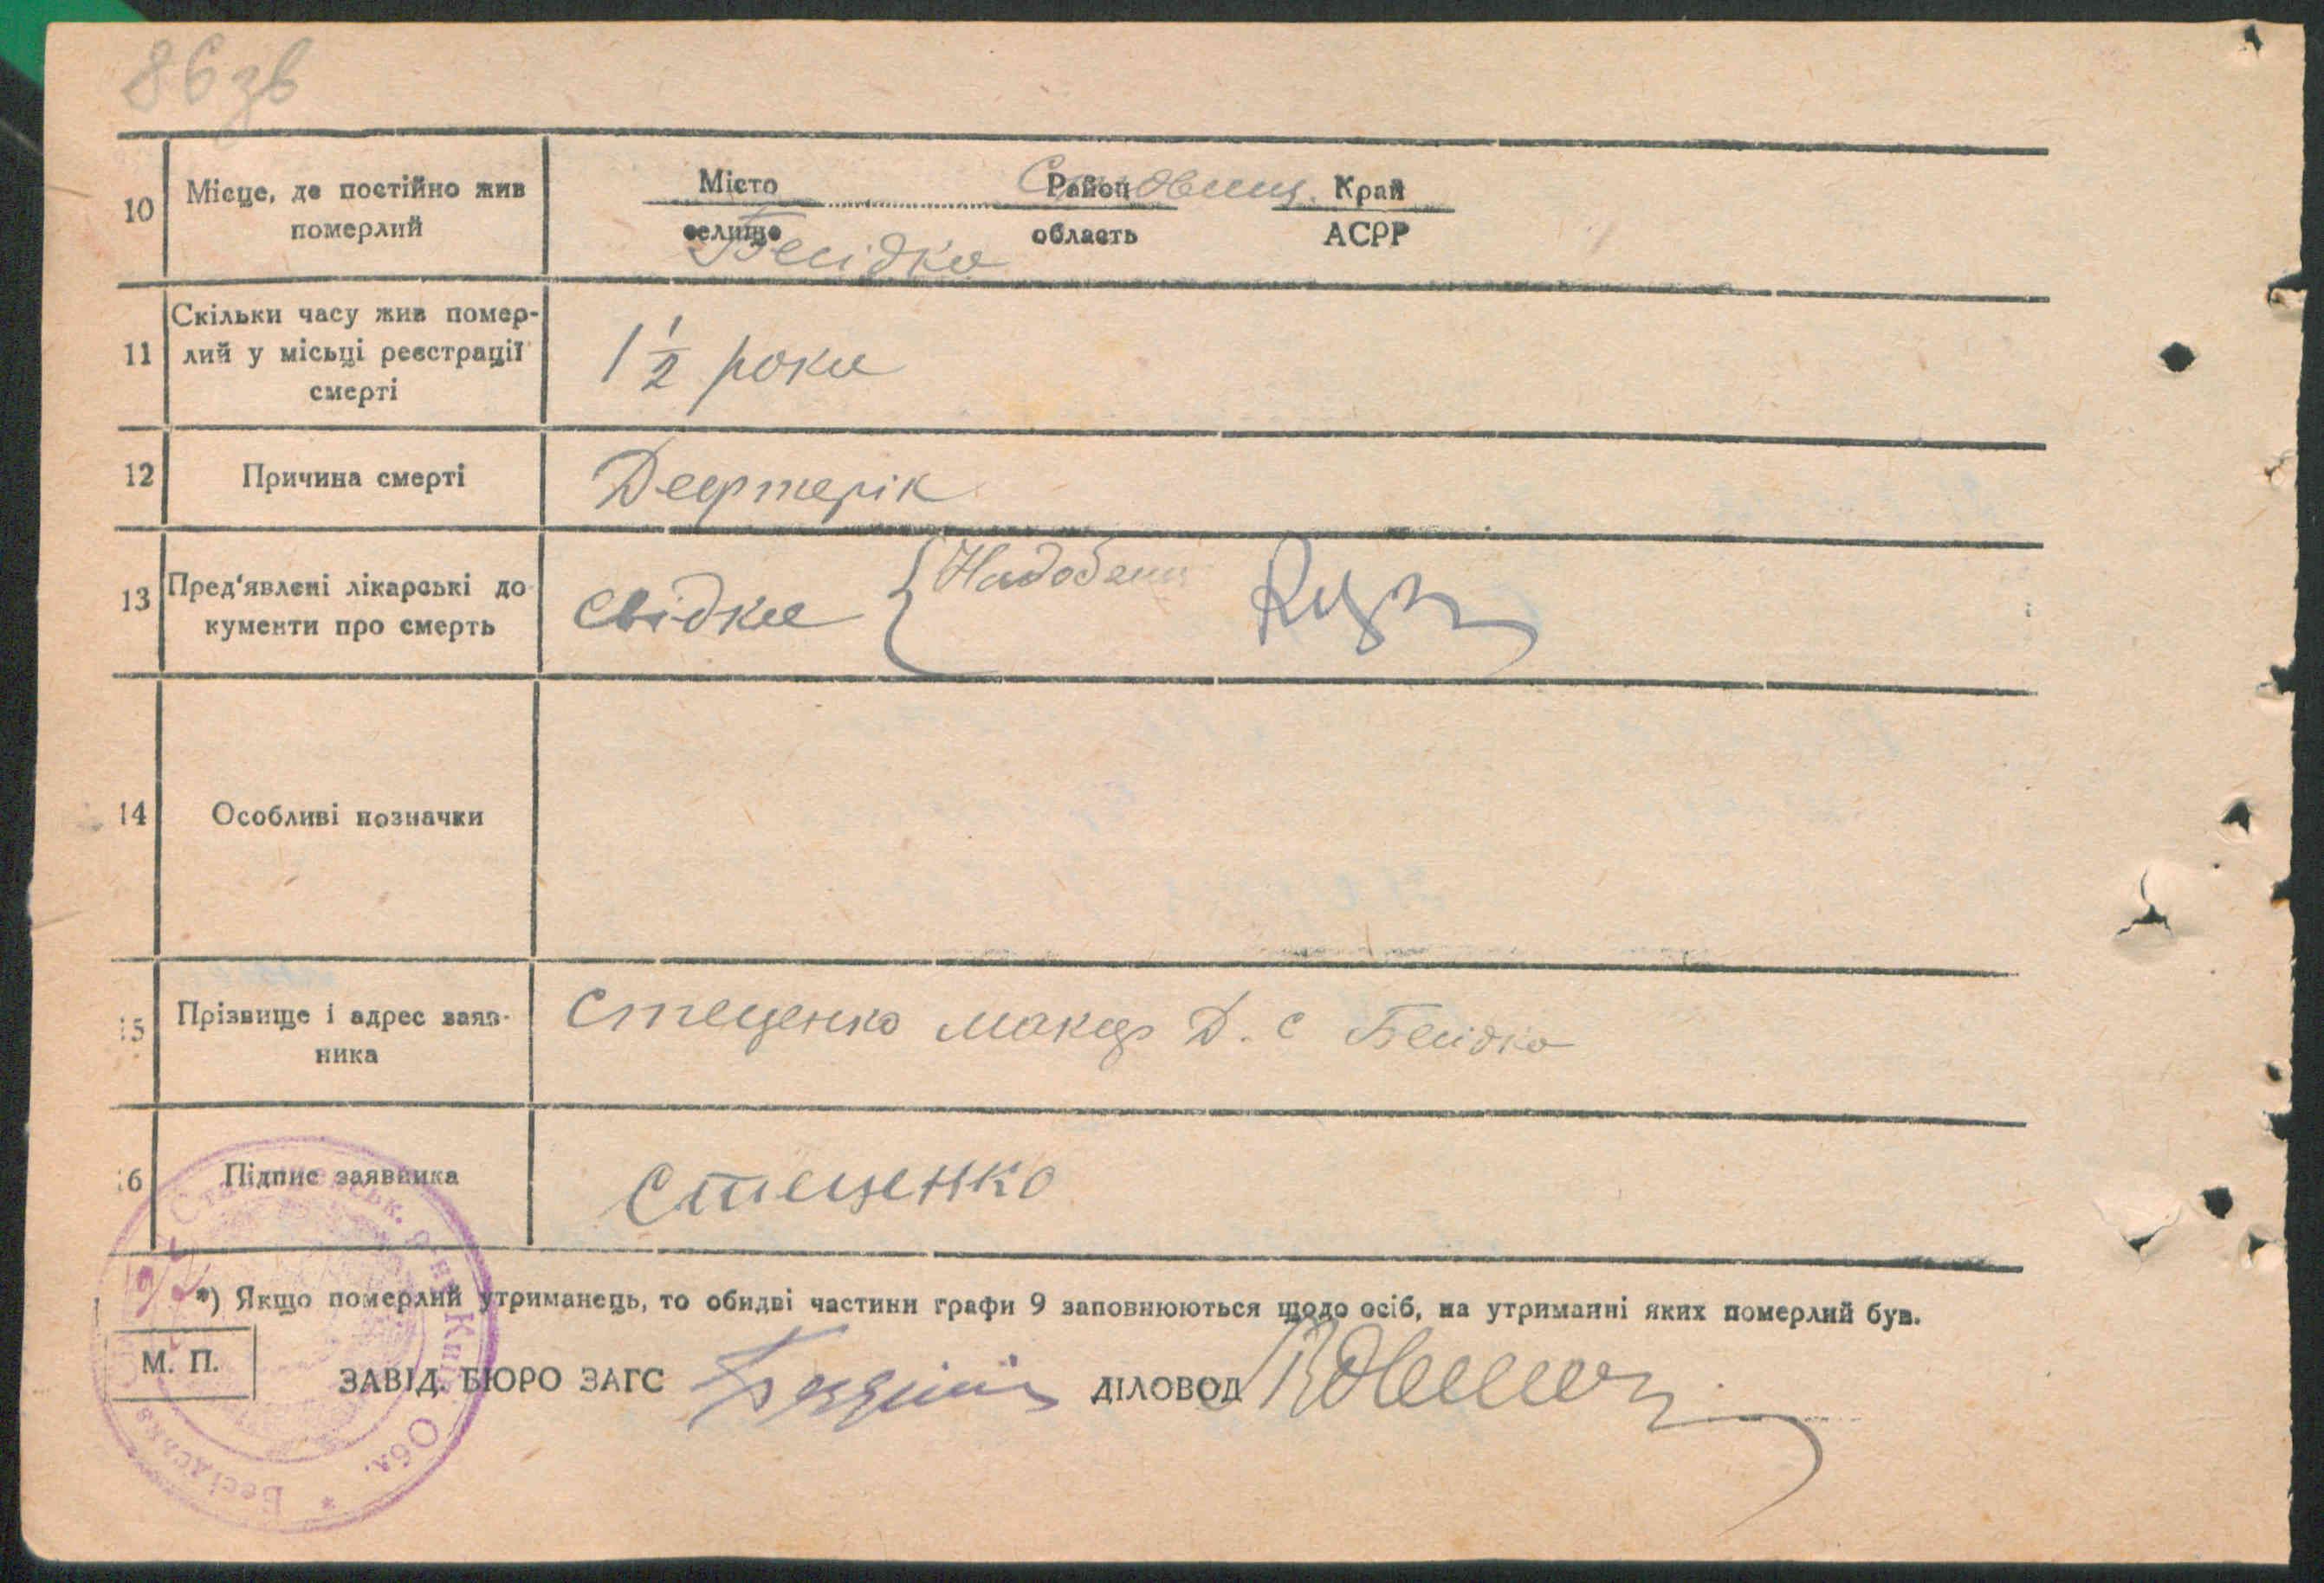 86 зв
10 Місце, де постійно жив померлий
Місто Район Край
селище область АСРР
Бесідка
11 Скільки часу жив помер-
лий у місьці реєстрації
смерті
1 1/2 роки
12 Причина смерті
Дефтерік
13 Пред'явлені лікарські до
кументи про смерть
свідки {
14 Особливі позначки
15 Прізвище і адрес заяв-
ника
Стеценко Макар Д. с Бесідка
16 Підпис заявника
Стеценко
*) Якщо померлий утриманець, то обидві частини графи 9 заповнюються щодо осіб, на утриманні яких померлий був.
М. П.
ЗАВІД. БЮРО ЗАГС ДІЛОВОД
Обл. * Бесідська